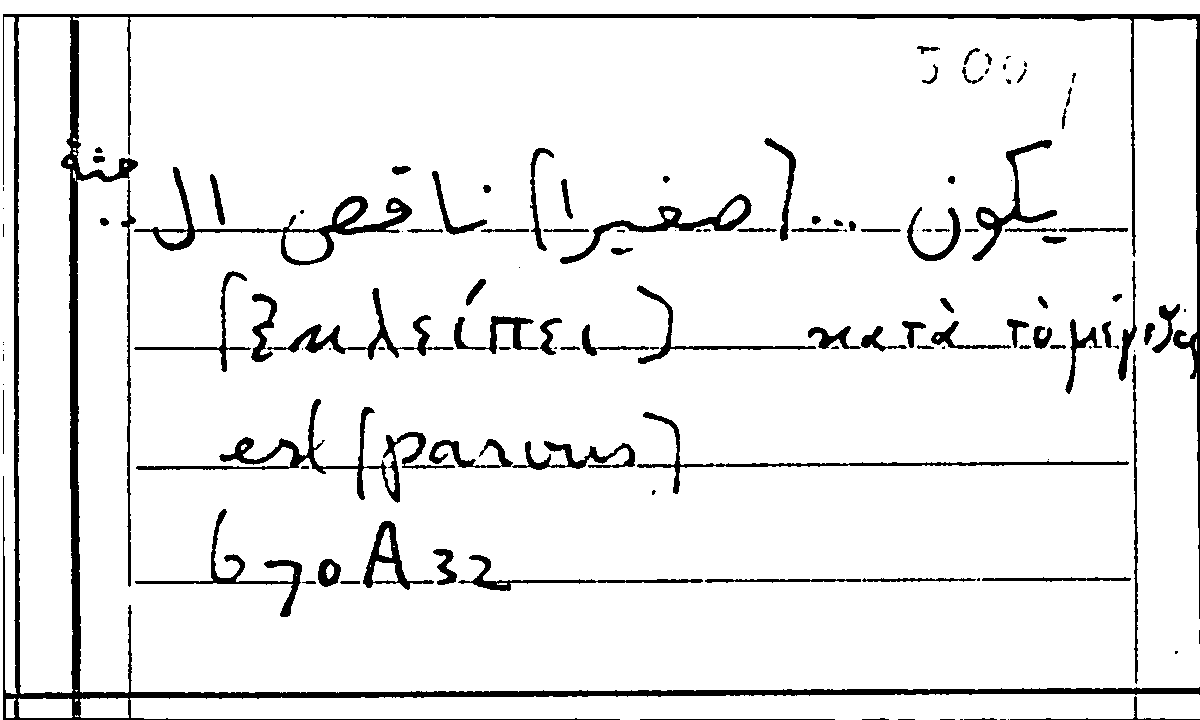 500
يكون ... [صغيرا] ناقص الـ
[ἐκλείπει] κατὰ τὸ μέγεθος
est [parvus]
670A32